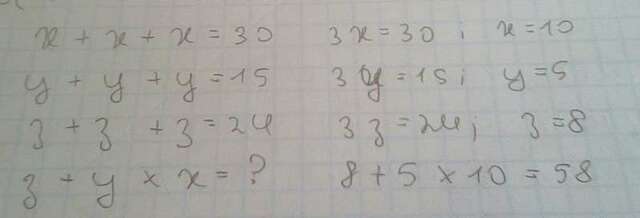 x + x + x = 30 3x = 30; x = 10
y + y + y = 15 3y = 15; y = 5
z + z + z = 24 3z = 24; z = 8
z + y × x = ? 8 + 5 × 10 = 58